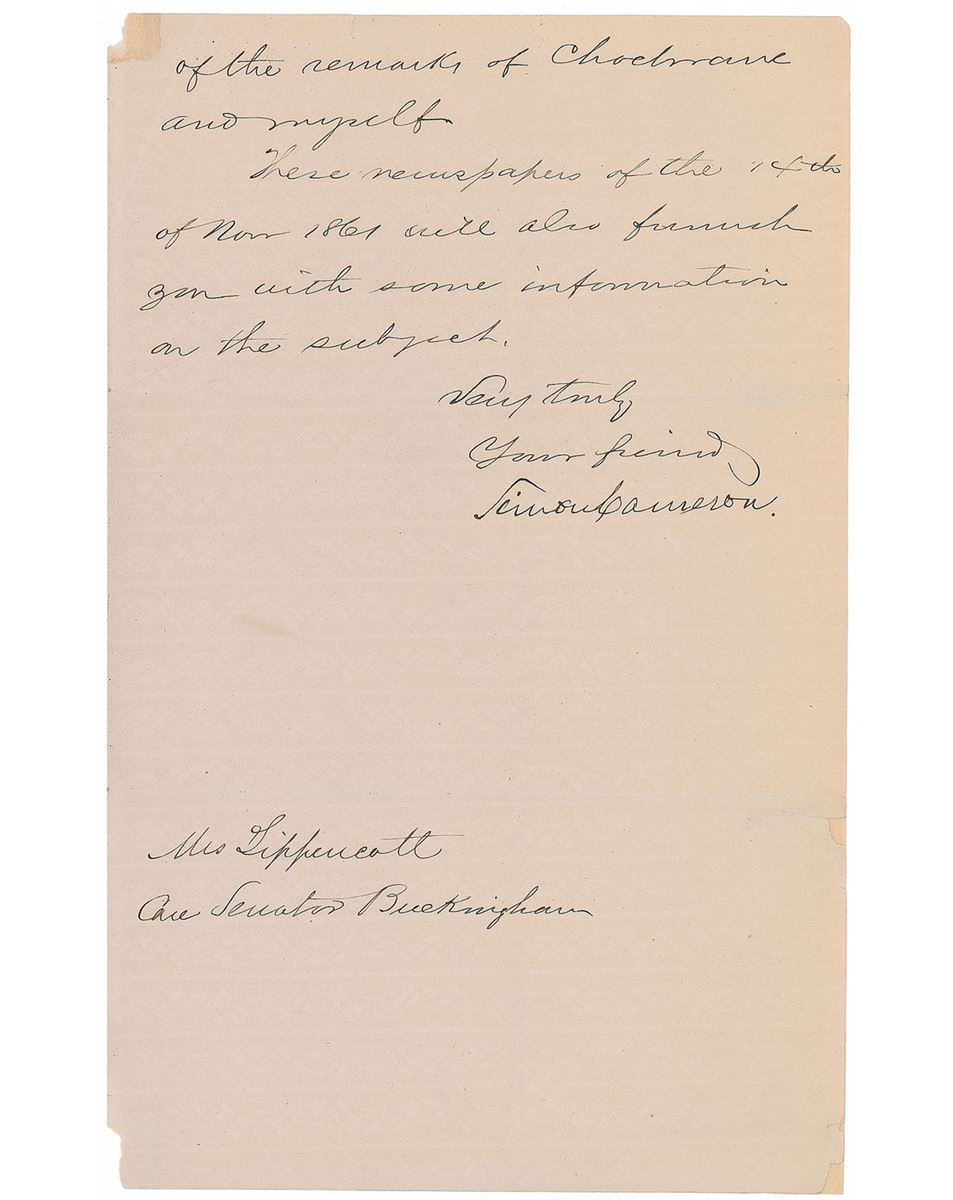 of the remarks of Chochrane
and myself
These newspapers of the 14th
of Nov 1861 will also furnish
you with some information
on the subject.
Very truly
Your friend
Simon Cameron.
Mrs Lippencott
Care Senator Buckingham